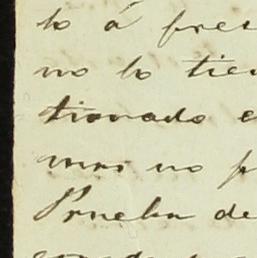 to á fres
no lo tien
tionado e
mas no p
Prueba de